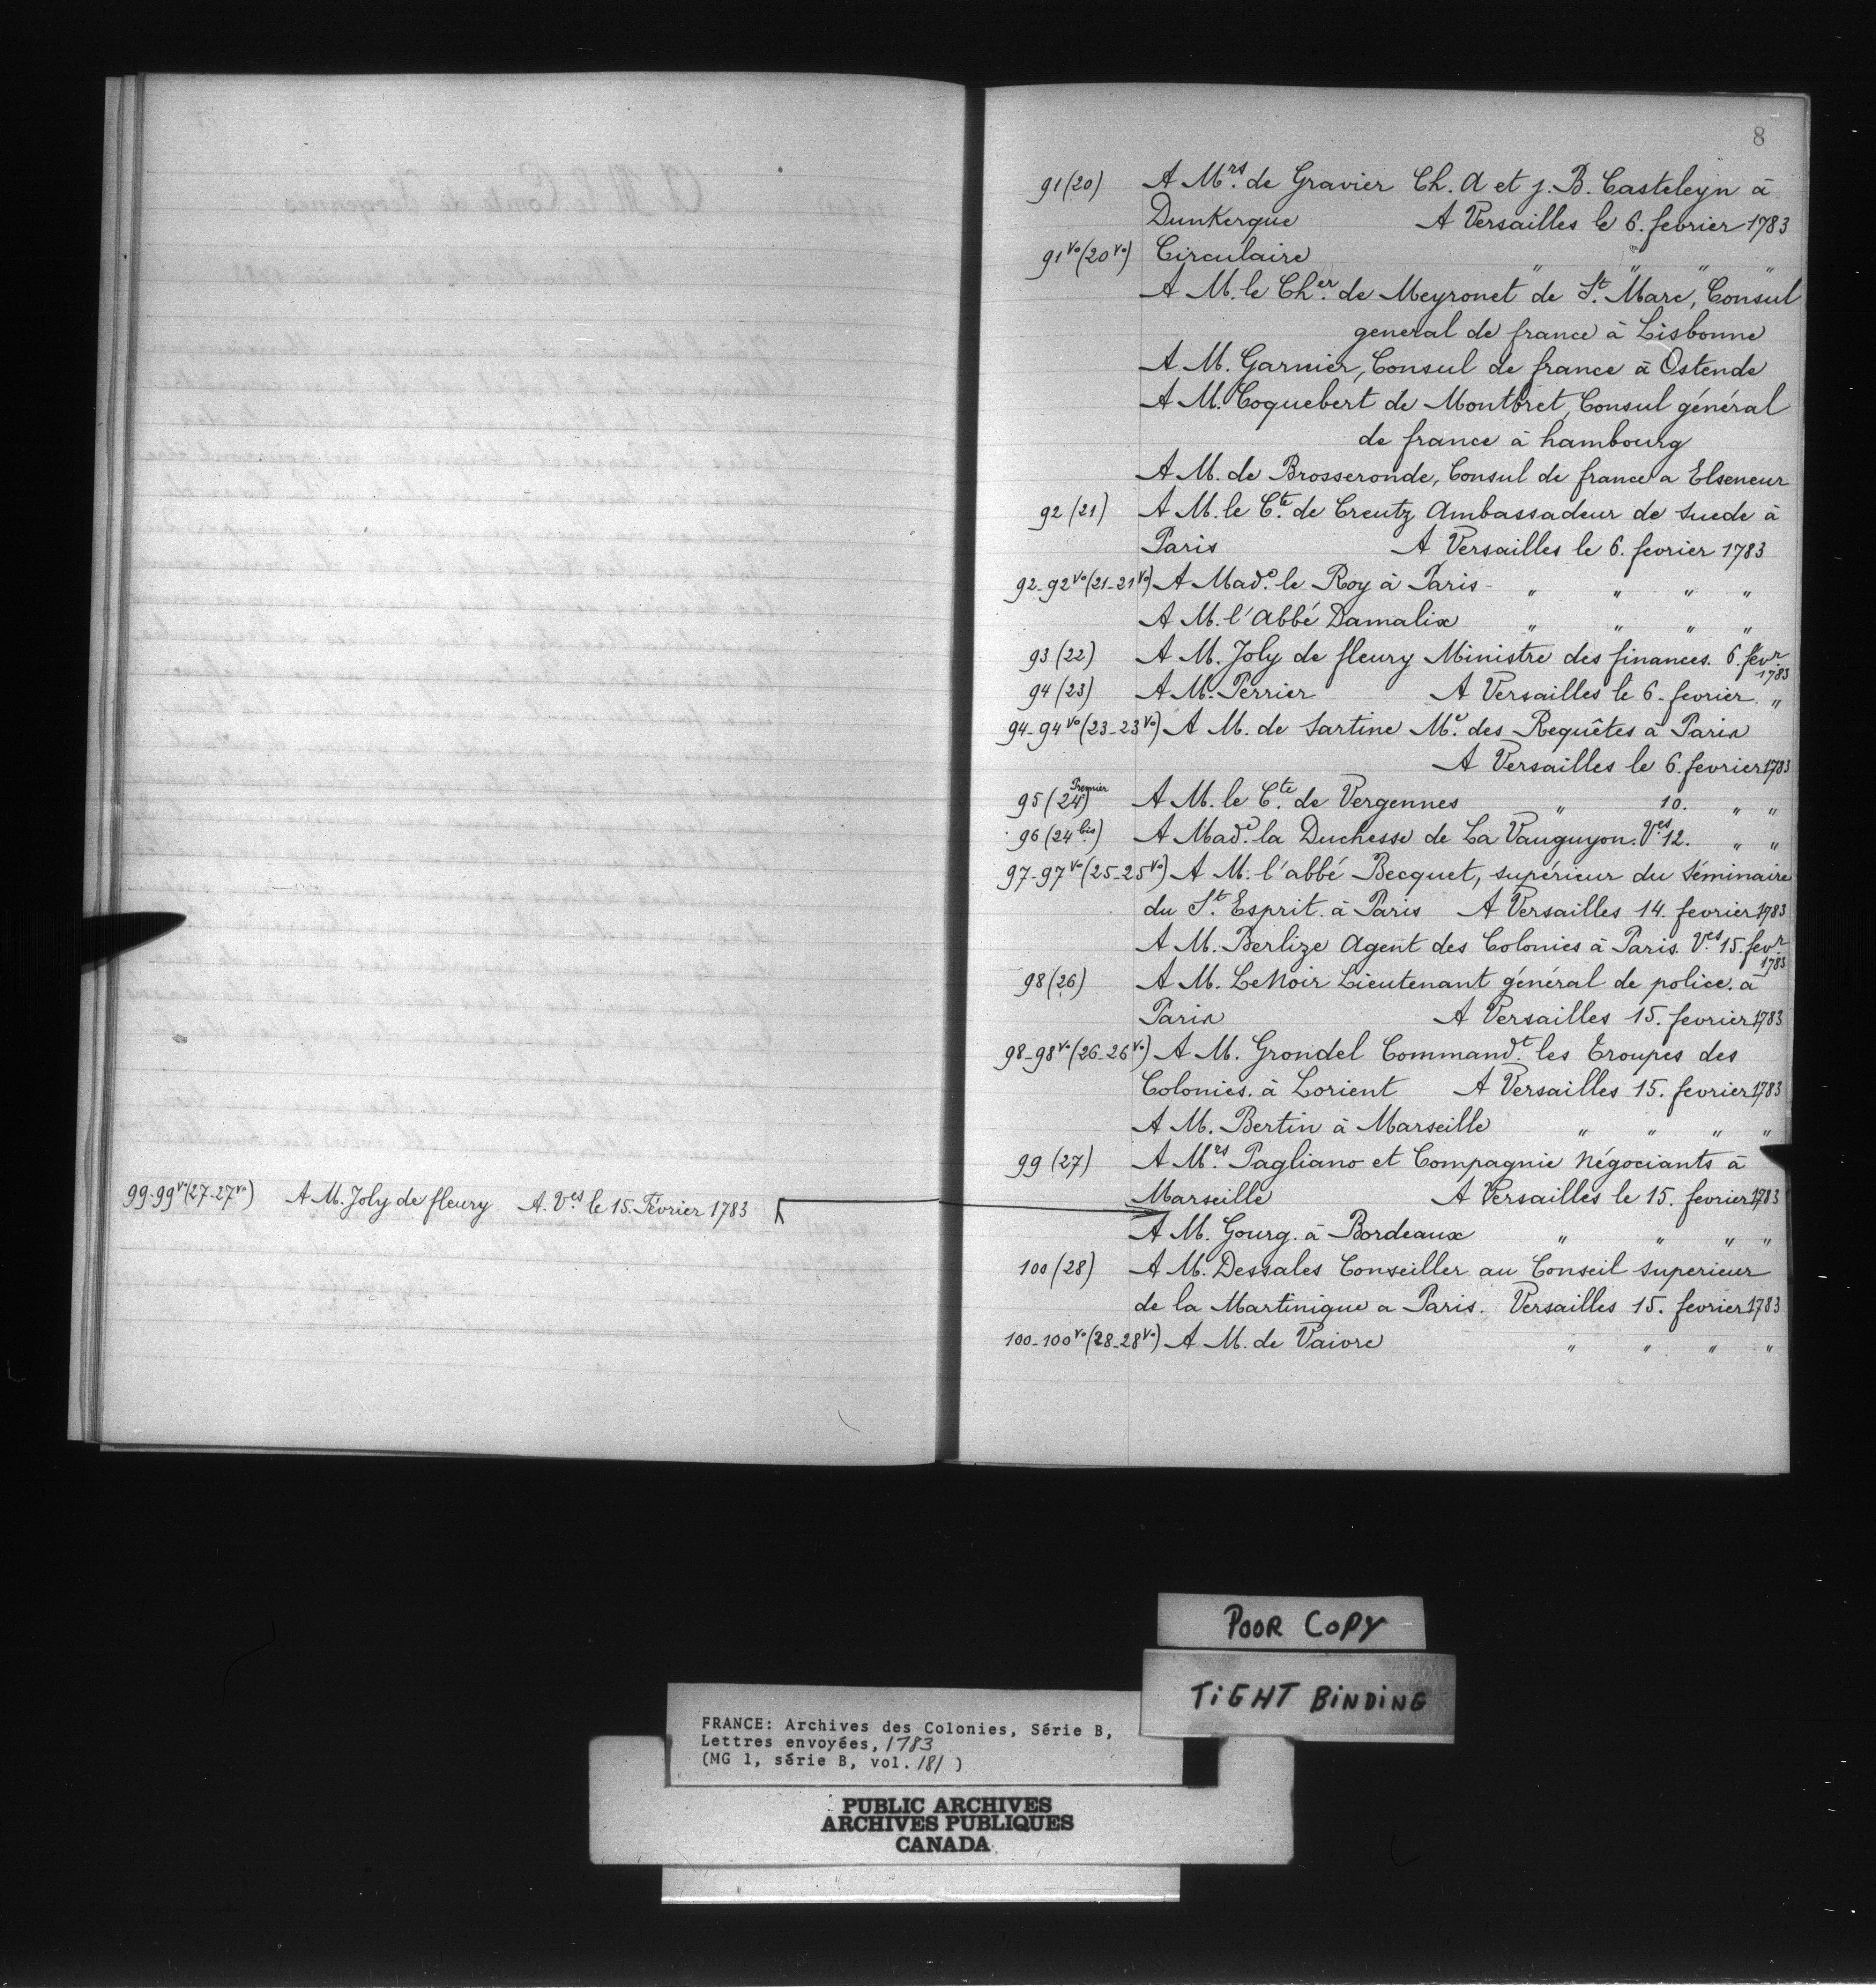 99-99vo(27-27vo) A M. Joly de fleury A. Ves le 15. Février 1783
8
91(20) A Mrs. de Gravier Ch. A et J. B. Casteleyn à
Dunkerque A Versailles le 6. fevrier 1783
91vo(20vo) Circulaire " " " "
A M. le Cher. de Meyronet de St. Marc, Consul
general de france à Lisbonne
A M. Garnier, Consul de france à Ostende
A M. Coquebert de Montbret, Consul général
de france à hambourg
A M. de Brosseronde, Consul de france a Elseneur
92(21) A M. le Cte. de Creutz Ambassadeur de suede à
Paris A Versailles le 6. fevrier 1783
92-92vo(21-21vo) A Made. le Roy à Paris - " " " "
A M. l'Abbé Damalix " " " "
93(22) A M. Joly de fleury Ministre des finances. 6. fevr. 1783
94(23) A M. Perrier A Versailles le 6. fevrier "
94-94vo(23-23vo) A M. de Sartine Me. des Requêtes à Paris
A Versailles le 6. fevrier 1783
95(24 Premier) A M. le Cte. de Vergennes " 10. " "
96(24 bis.) A Made. la Duchesse de La Vauguyon. Ves. 12. " "
97-97vo(25-25vo) A M. l'abbé Becquet, supérieur du Séminaire
du St. Esprit. à Paris A Versailles 14. fevrier 1783
A M. Berlize Agent des Colonies à Paris. Ves. 15. fevr. 1783
98(26) A M. LeNoir Lieutenant général de police. à
Paris A Versailles 15. fevrier 1783
98-98vo(26-26vo) A M. Grondel Commandt. les Troupes des
Colonies. à Lorient A Versailles 15. fevrier 1783
A M. Bertin à Marseille " " " "
99(27) A Mrs. Pagliano et Compagnie Négociants à
Marseille A Versailles le 15. fevrier 1783
A M. Gourg. à Bordeaux " " " "
100(28) A M. Dessales Conseiller au Conseil superieur
de la Martinique a Paris. Versailles 15. fevrier 1783
100-100vo(28-28vo) A M. de Vaivre " " " "
POOR COPY
TIGHT BINDING
FRANCE: Archives des Colonies, Série B,
Lettres envoyées, 1783
(MG 1, série B, vol. 181 )
PUBLIC ARCHIVES
ARCHIVES PUBLIQUES
CANADA